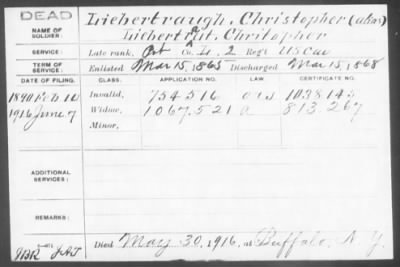 DEAD
NAME OF SOLDIER:
Liebertraugh, Christopher (alias)
Liebertrut, Christopher
SERVICE:
Late rank, Pvt Co. H. 2 Reg't US Cav
TERM OF SERVICE:
Enlisted Mar 15, 1865 Discharged Mar 15, 1868
DATE OF FILING. CLASS. APPLICATION NO. LAW CERTIFICATE NO.
1890 Feb 10 Invalid, 754516 1038145
1916 June 7 Widow, 1067.521 a 813.267
Minor,
ADDITIONAL SERVICES:
REMARKS:
Died May 30, 1916, at Buffalo, N.Y.